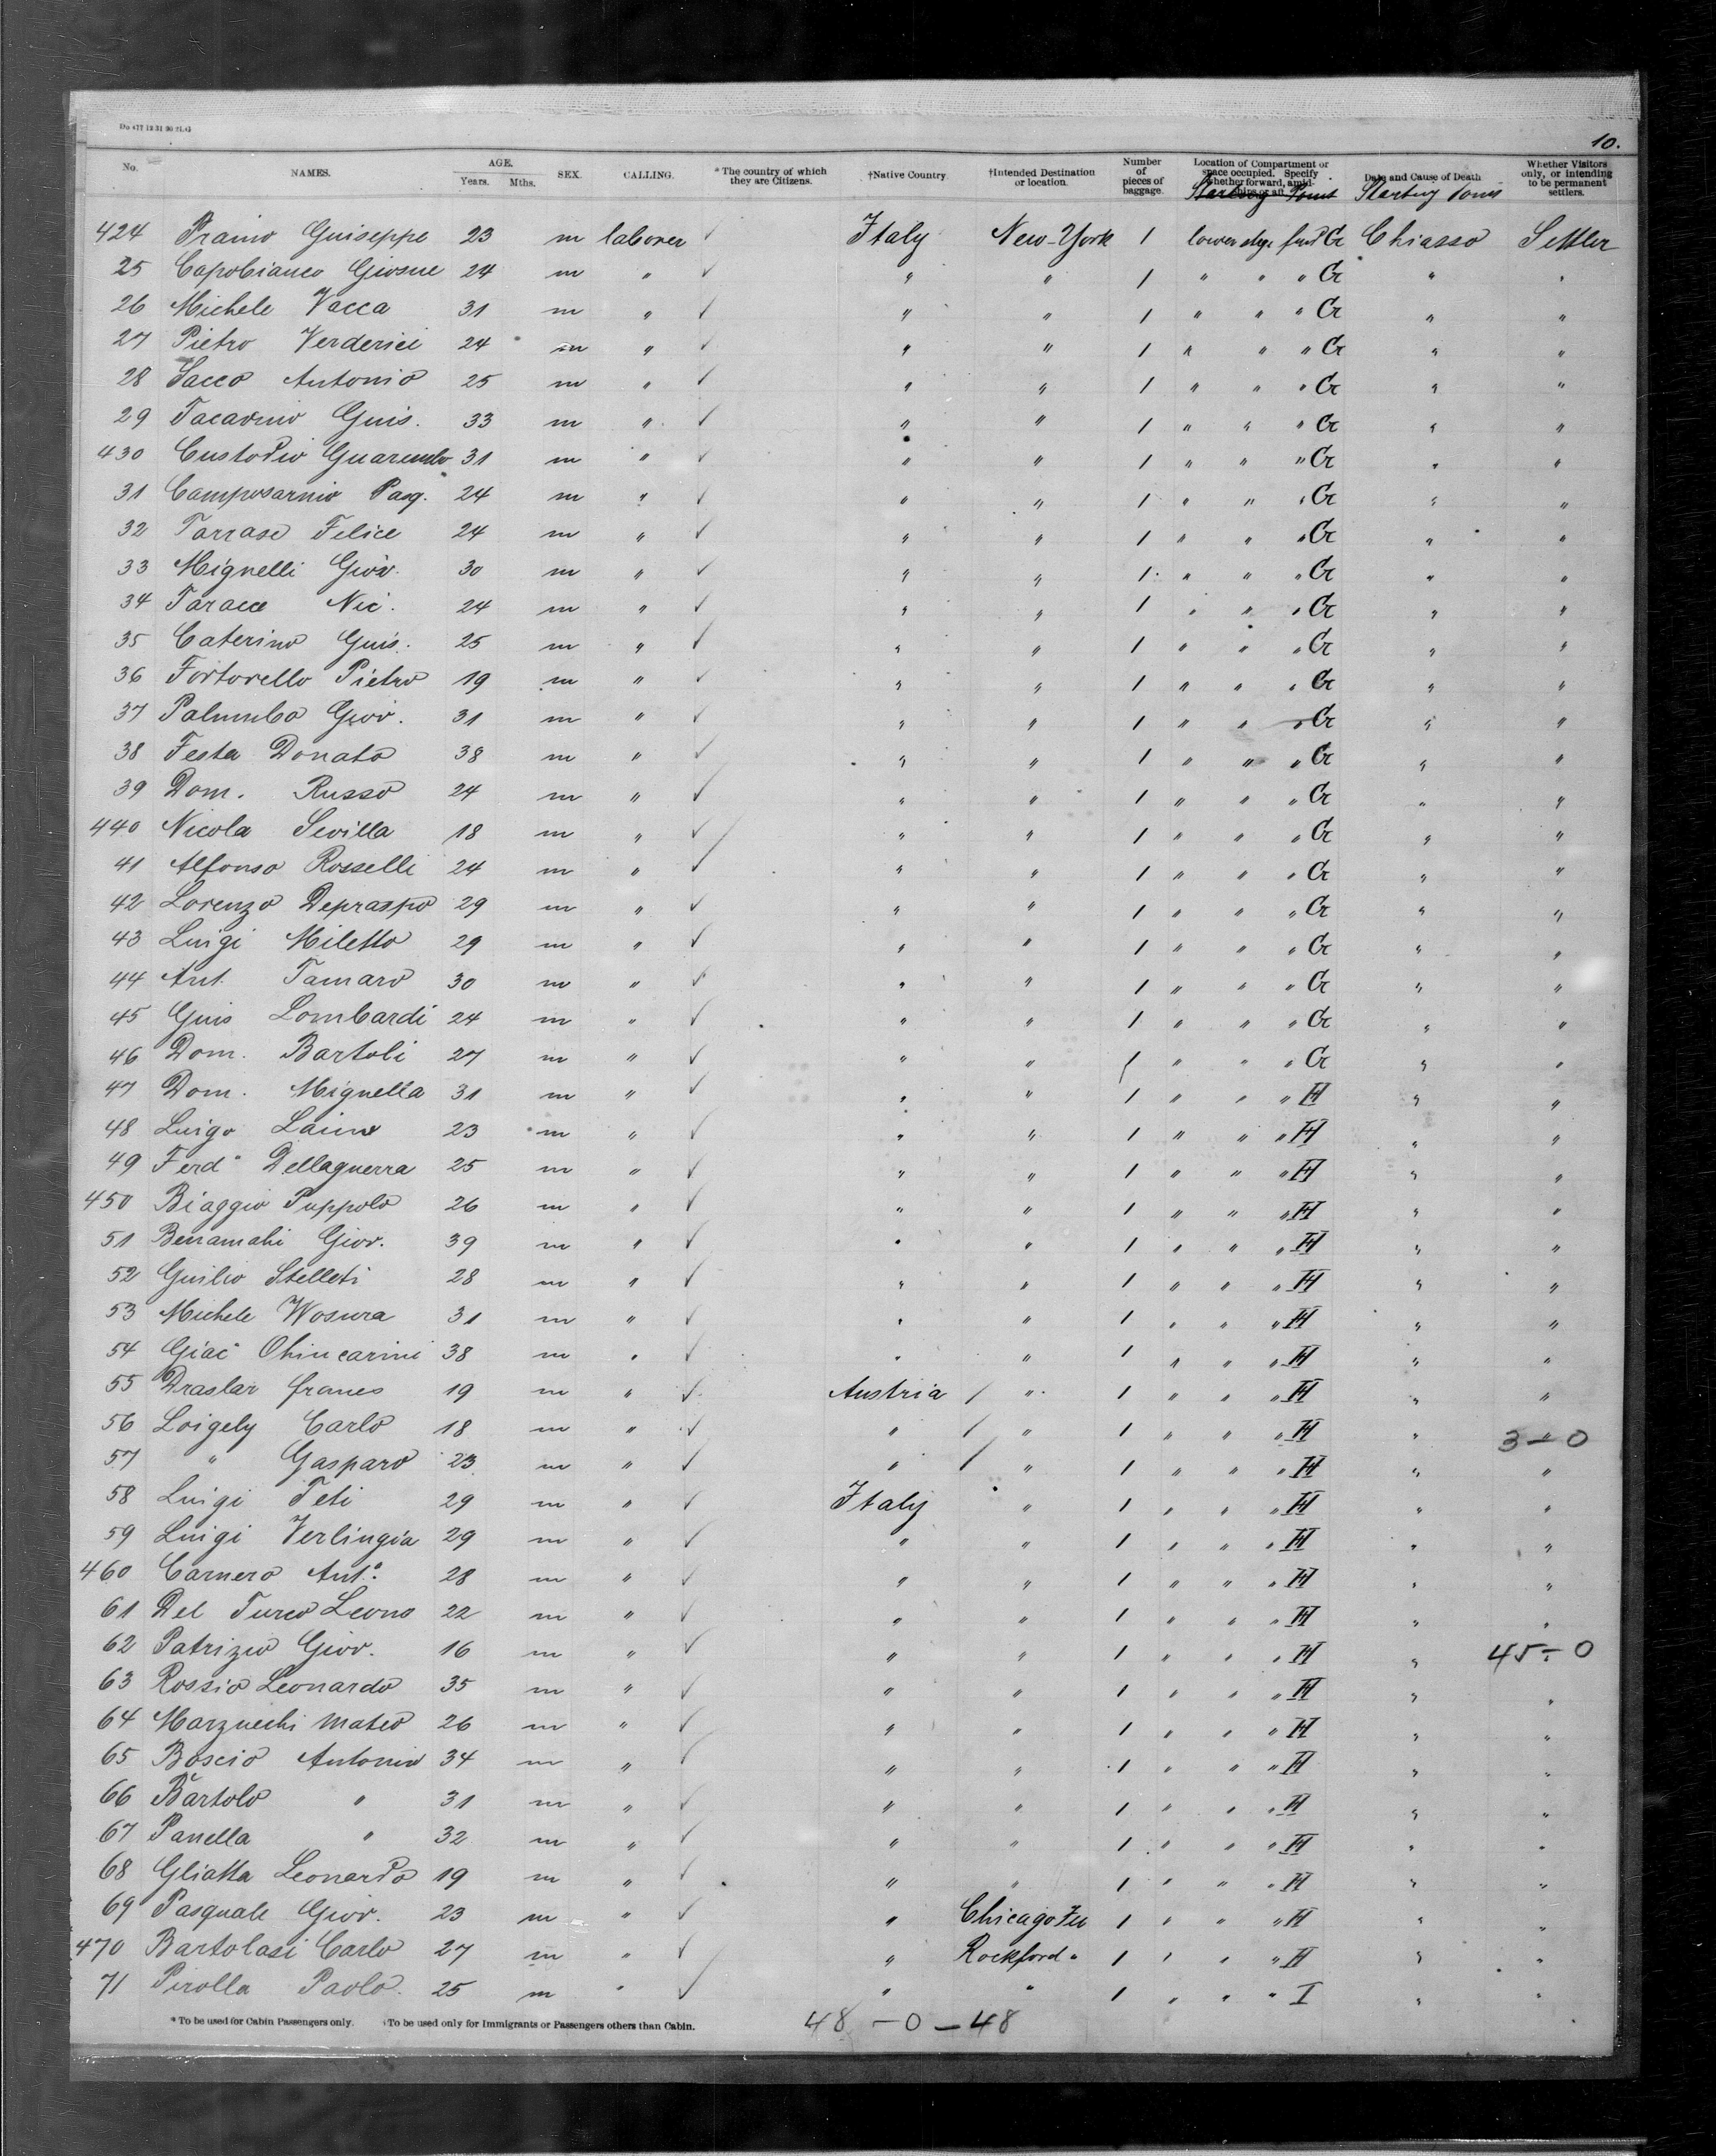 Do 477 12 31 90 2L.G
10.
No. NAMES. AGE. Years. Mths. SEX. CALLING. *The country of which they are Citizens. †Native Country. †Intended Destination or location. Number of pieces of baggage. Location of Compartment or space occupied. Specify whether forward, amidships or aft. Date and Cause of Death Whether Visitors only, or intending to be permanent settlers.
Starting Point Starting Point
424 Praino Guiseppe 23 m laborer ✓ Italy New-York 1 lower stge fwd G Chiasso Settler
25 Capobianco Giosue 24 m " ✓ " " 1 " " " G " "
26 Michele Vacca 31 m " ✓ " " 1 " " " G " "
27 Pietro Verderici 24 m " ✓ " " 1 " " " G " "
28 Sacco Antonio 25 m " ✓ " " 1 " " " G " "
29 Guis. 33 m " ✓ " " 1 " " " G " "
430 Custodio 31 m " ✓ " " 1 " " " G " "
31 Camposarnio Pasq. 24 m " ✓ " " 1 " " " G " "
32 Tarraso Felice 24 m " ✓ " " 1 " " " G " "
33 Mignelli Giov. 30 m " ✓ " " 1 " " " G " "
34 Nic. 24 m " ✓ " " 1 " " " G " "
35 Caterino Guis. 25 m " ✓ " " 1 " " " G " "
36 Fortorello Pietro 19 m " ✓ " " 1 " " " G " "
37 Palumbo Giov. 31 m " ✓ " " 1 " " " G " "
38 Festa Donato 38 m " ✓ " " 1 " " " G " "
39 Dom. Russo 24 m " ✓ " " 1 " " " G " "
440 Nicola Sevilla 18 m " ✓ " " 1 " " " G " "
41 Alfonso Rosselli 24 m " ✓ " " 1 " " " G " "
42 Lorenzo Depraspo 29 m " ✓ " " 1 " " " G " "
43 Luigi Miletto 29 m " ✓ " " 1 " " " G " "
44 Ant. Tamaro 30 m " ✓ " " 1 " " " G " "
45 Guis Lombardi 24 m " ✓ " " 1 " " " G " "
46 Dom. Bartoli 27 m " ✓ " " 1 " " " G " "
47 Dom. Mignella 31 m " ✓ " " 1 " " " H " "
48 Luigo 23 m " ✓ " " 1 " " " H " "
49 Ferdo Dellaguerra 25 m " ✓ " " 1 " " " H " "
450 Biaggio Puppolo 26 m " ✓ " " 1 " " " H " "
51 Benamahi Giov. 39 m " ✓ " " 1 " " " H " "
52 Guilio Stelleti 28 m " ✓ " " 1 " " " H " "
53 Michele Wosura 31 m " ✓ " " 1 " " " H " "
54 Giaco Chiucarini 38 m " ✓ " " 1 " " " H " "
55 Draslar franes 19 m " ✓ Austria / " 1 " " " H " "
56 Loigely Carlo 18 m " ✓ " / " 1 " " " H " " 3-0
57 " Gasparo 23 m " ✓ " / " 1 " " " H " "
58 Luigi Teti 29 m " ✓ Italy " 1 " " " H " "
59 Luigi Verlingia 29 m " ✓ " " 1 " " " H " "
460 Carnero Anto. 28 m " ✓ " " 1 " " " H " "
61 Del Turco Leono 22 m " ✓ " " 1 " " " H " "
62 Patrizio Giov. 16 m " ✓ " " 1 " " " H " " 45-0
63 Rossio Leonardo 35 m " ✓ " " 1 " " " H " "
64 Marzuechi Mateo 26 m " ✓ " " 1 " " " H " "
65 Boscio Antonio 34 m " ✓ " " 1 " " " H " "
66 Bartolo " 31 m " ✓ " " 1 " " " H " "
67 Panella " 32 m " ✓ " " 1 " " " H " "
68 Gliatta Leonardo 19 m " ✓ " " 1 " " " H " "
69 Pasquale Giov. 23 m " ✓ " Chicago Ill 1 " " " H " "
470 Bartolasi Carlo 27 m " ✓ " Rockford " 1 " " " H " "
71 Pirolla Paolo. 25 m " ✓ " " 1 " " " I " "
* To be used for Cabin Passengers only. †To be used only for Immigrants or Passengers others than Cabin. 48 - 0 - 48